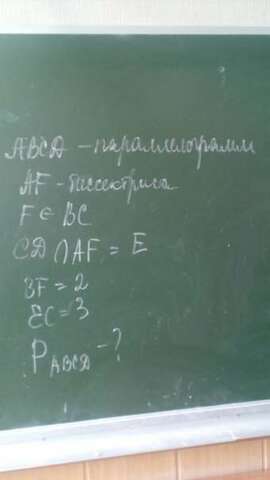 ABCD - параллелограмм
AF - биссектриса
F ∈ BC
CD ∩ AF = E
BF = 2
EC = 3
P ABCD - ?